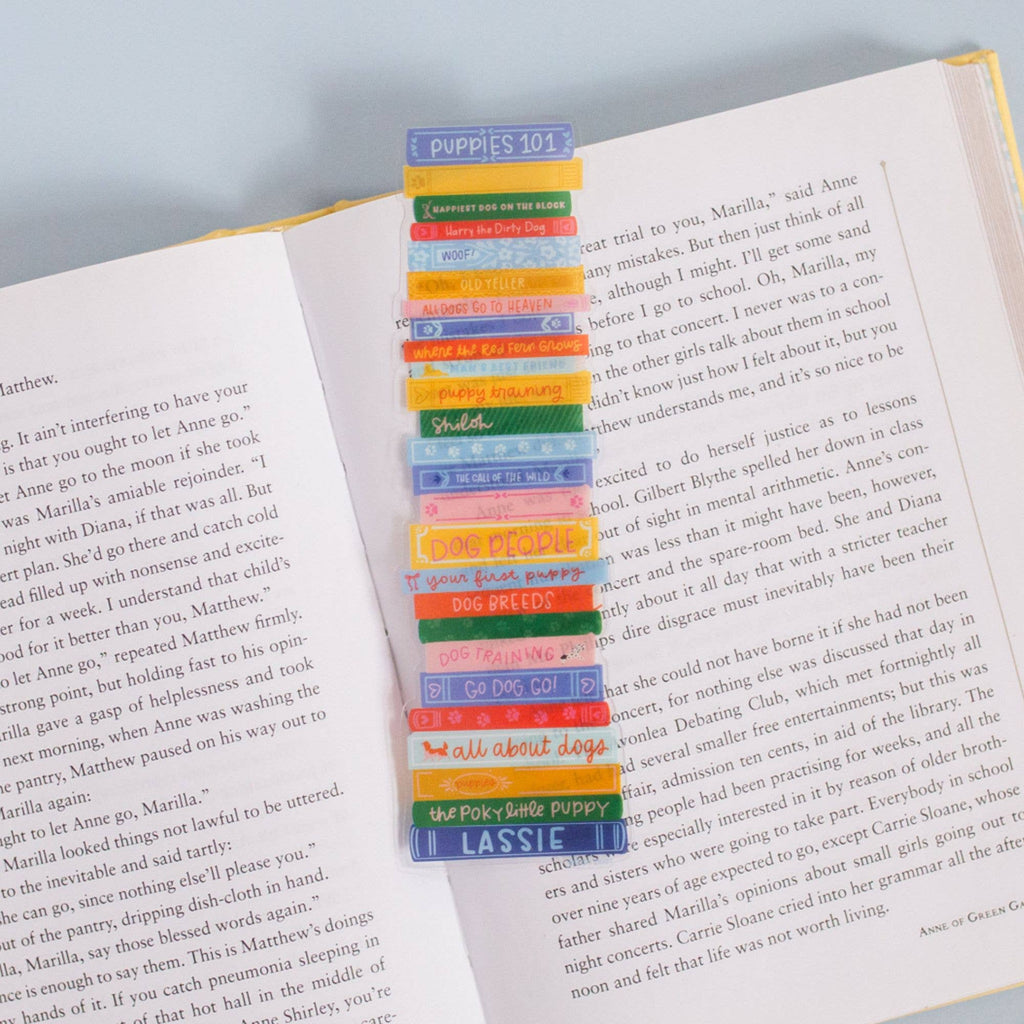 Matthew.
g. It ain't interfering to have your
is that you ought to let Anne go."
et Anne go to the moon if she took
was Marilla's amiable rejoinder. "I
night with Diana, if that was all. But
ert plan. She'd go there and catch cold
ead filled up with nonsense and excite-
er for a week. I understand that child's
ood for it better than you, Matthew."
o let Anne go," repeated Matthew firmly.
strong point, but holding fast to his opin-
rilla gave a gasp of helplessness and took
next morning, when Anne was washing the
e pantry, Matthew paused on his way out to
Marilla again:
ght to let Anne go, Marilla."
Marilla looked things not lawful to be uttered.
to the inevitable and said tartly:
she can go, since nothing else'll please you."
out of the pantry, dripping dish-cloth in hand.
lla, Marilla, say those blessed words again."
nce is enough to say them. This is Matthew's doings
my hands of it. If you catch pneumonia sleeping in
of that hot hall in the middle of
Anne Shirley, you're
care-
PUPPIES 101
HAPPIEST DOG ON THE BLOCK
Harry the Dirty Dog
WOOF!
OLD YELLER
ALL DOGS GO TO HEAVEN
Where the Red Fern Grows
MAN'S BEST FRIEND
puppy training
Shiloh
THE CALL OF THE WILD
DOG PEOPLE
your first puppy
DOG BREEDS
DOG TRAINING
GO DOG GO!
all about dogs
puppies
the POKY little PUPPY
LASSIE
reat trial to you, Marilla," said Anne
any mistakes. But then just think of all
e, although I might. I'll get some sand
s before I go to school. Oh, Marilla, my
ing to that concert. I never was to a con-
n the other girls talk about them in school
didn't know just how I felt about it, but you
thew understands me, and it's so nice to be
excited to do herself justice as to lessons
hool. Gilbert Blythe spelled her down in class
out of sight in mental arithmetic. Anne's con-
n was less than it might have been, however,
oncert and the spare-room bed. She and Diana
ntly about it all day that with a stricter teacher
ps dire disgrace must inevitably have been their
hat she could not have borne it if she had not been
oncert, for nothing else was discussed that day in
vonlea Debating Club, which met fortnightly all
ad several smaller free entertainments; but this was
ffair, admission ten cents, in aid of the library. The
ng people had been practising for weeks, and all the
scholars were especially interested in it by reason of older broth-
ers and sisters who were going to take part. Everybody in school
over nine years of age expected to go, except Carrie Sloane, whose
father shared Marilla's opinions about small girls going out to
night concerts. Carrie Sloane cried into her grammar all the after
noon and felt that life was not worth living.
ANNE OF GREEN GA